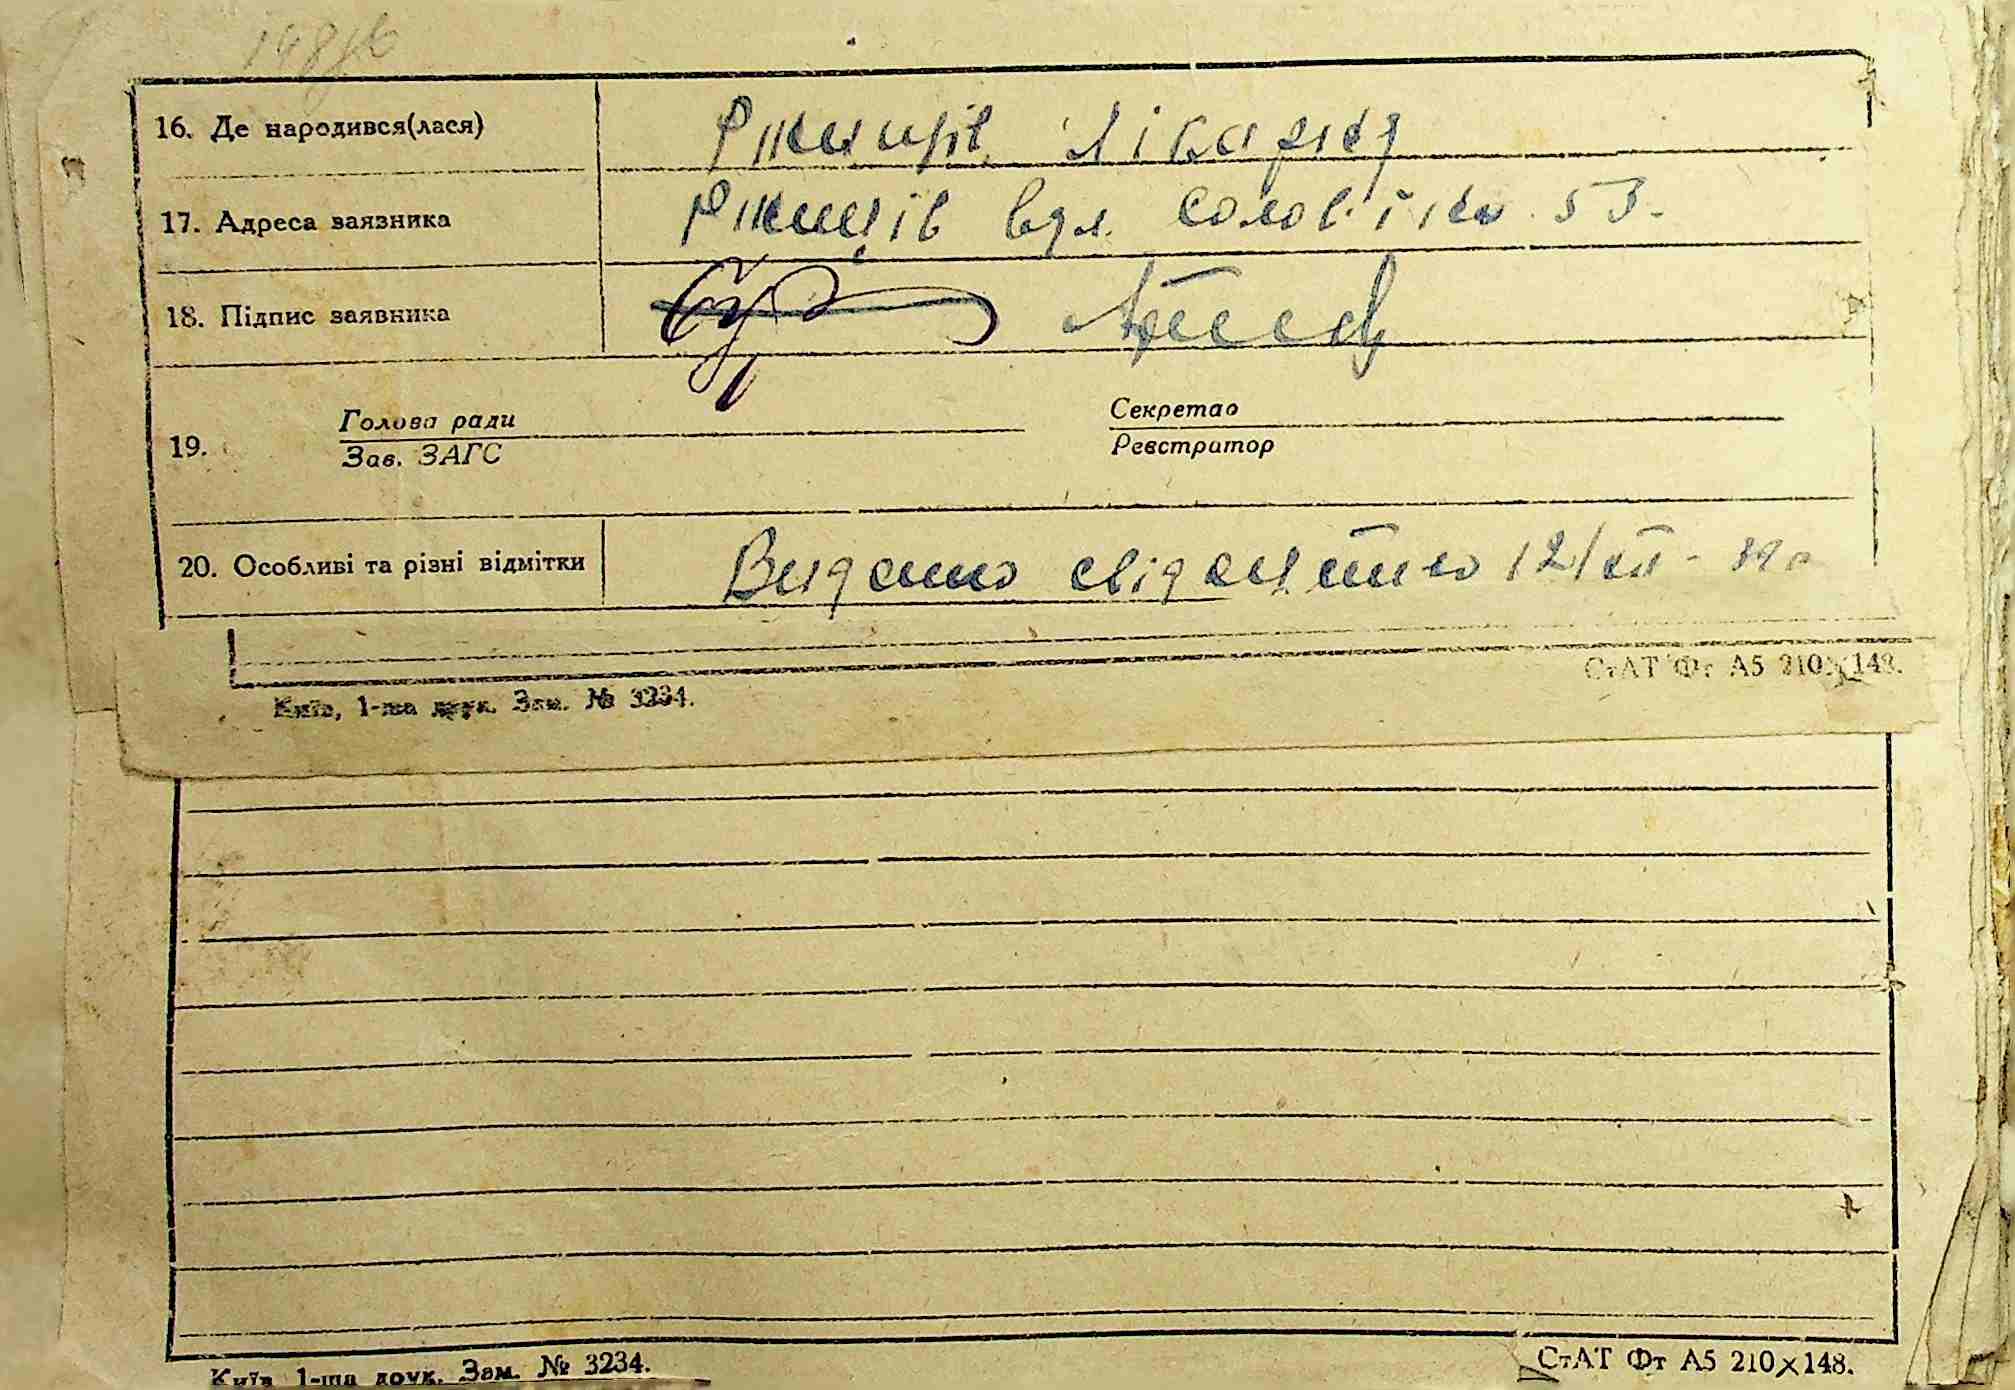 16. Де народився(лася) Ржищів лікарня
17. Адреса заязника Ржищів вул. Солов'їна 53.
18. Підпис заявника
Голова ради Секретар
19.
Зав. ЗАГС Реєстратор
20. Особливі та різні відмітки Видано свідоцтво 12/XII-39р
СтАТ Фт А5 210×148.
Київ, 1-ша друк. Зам. № 3234.
Київ, 1-ша друк. Зам. № 3234. СтАТ Фт А5 210×148.